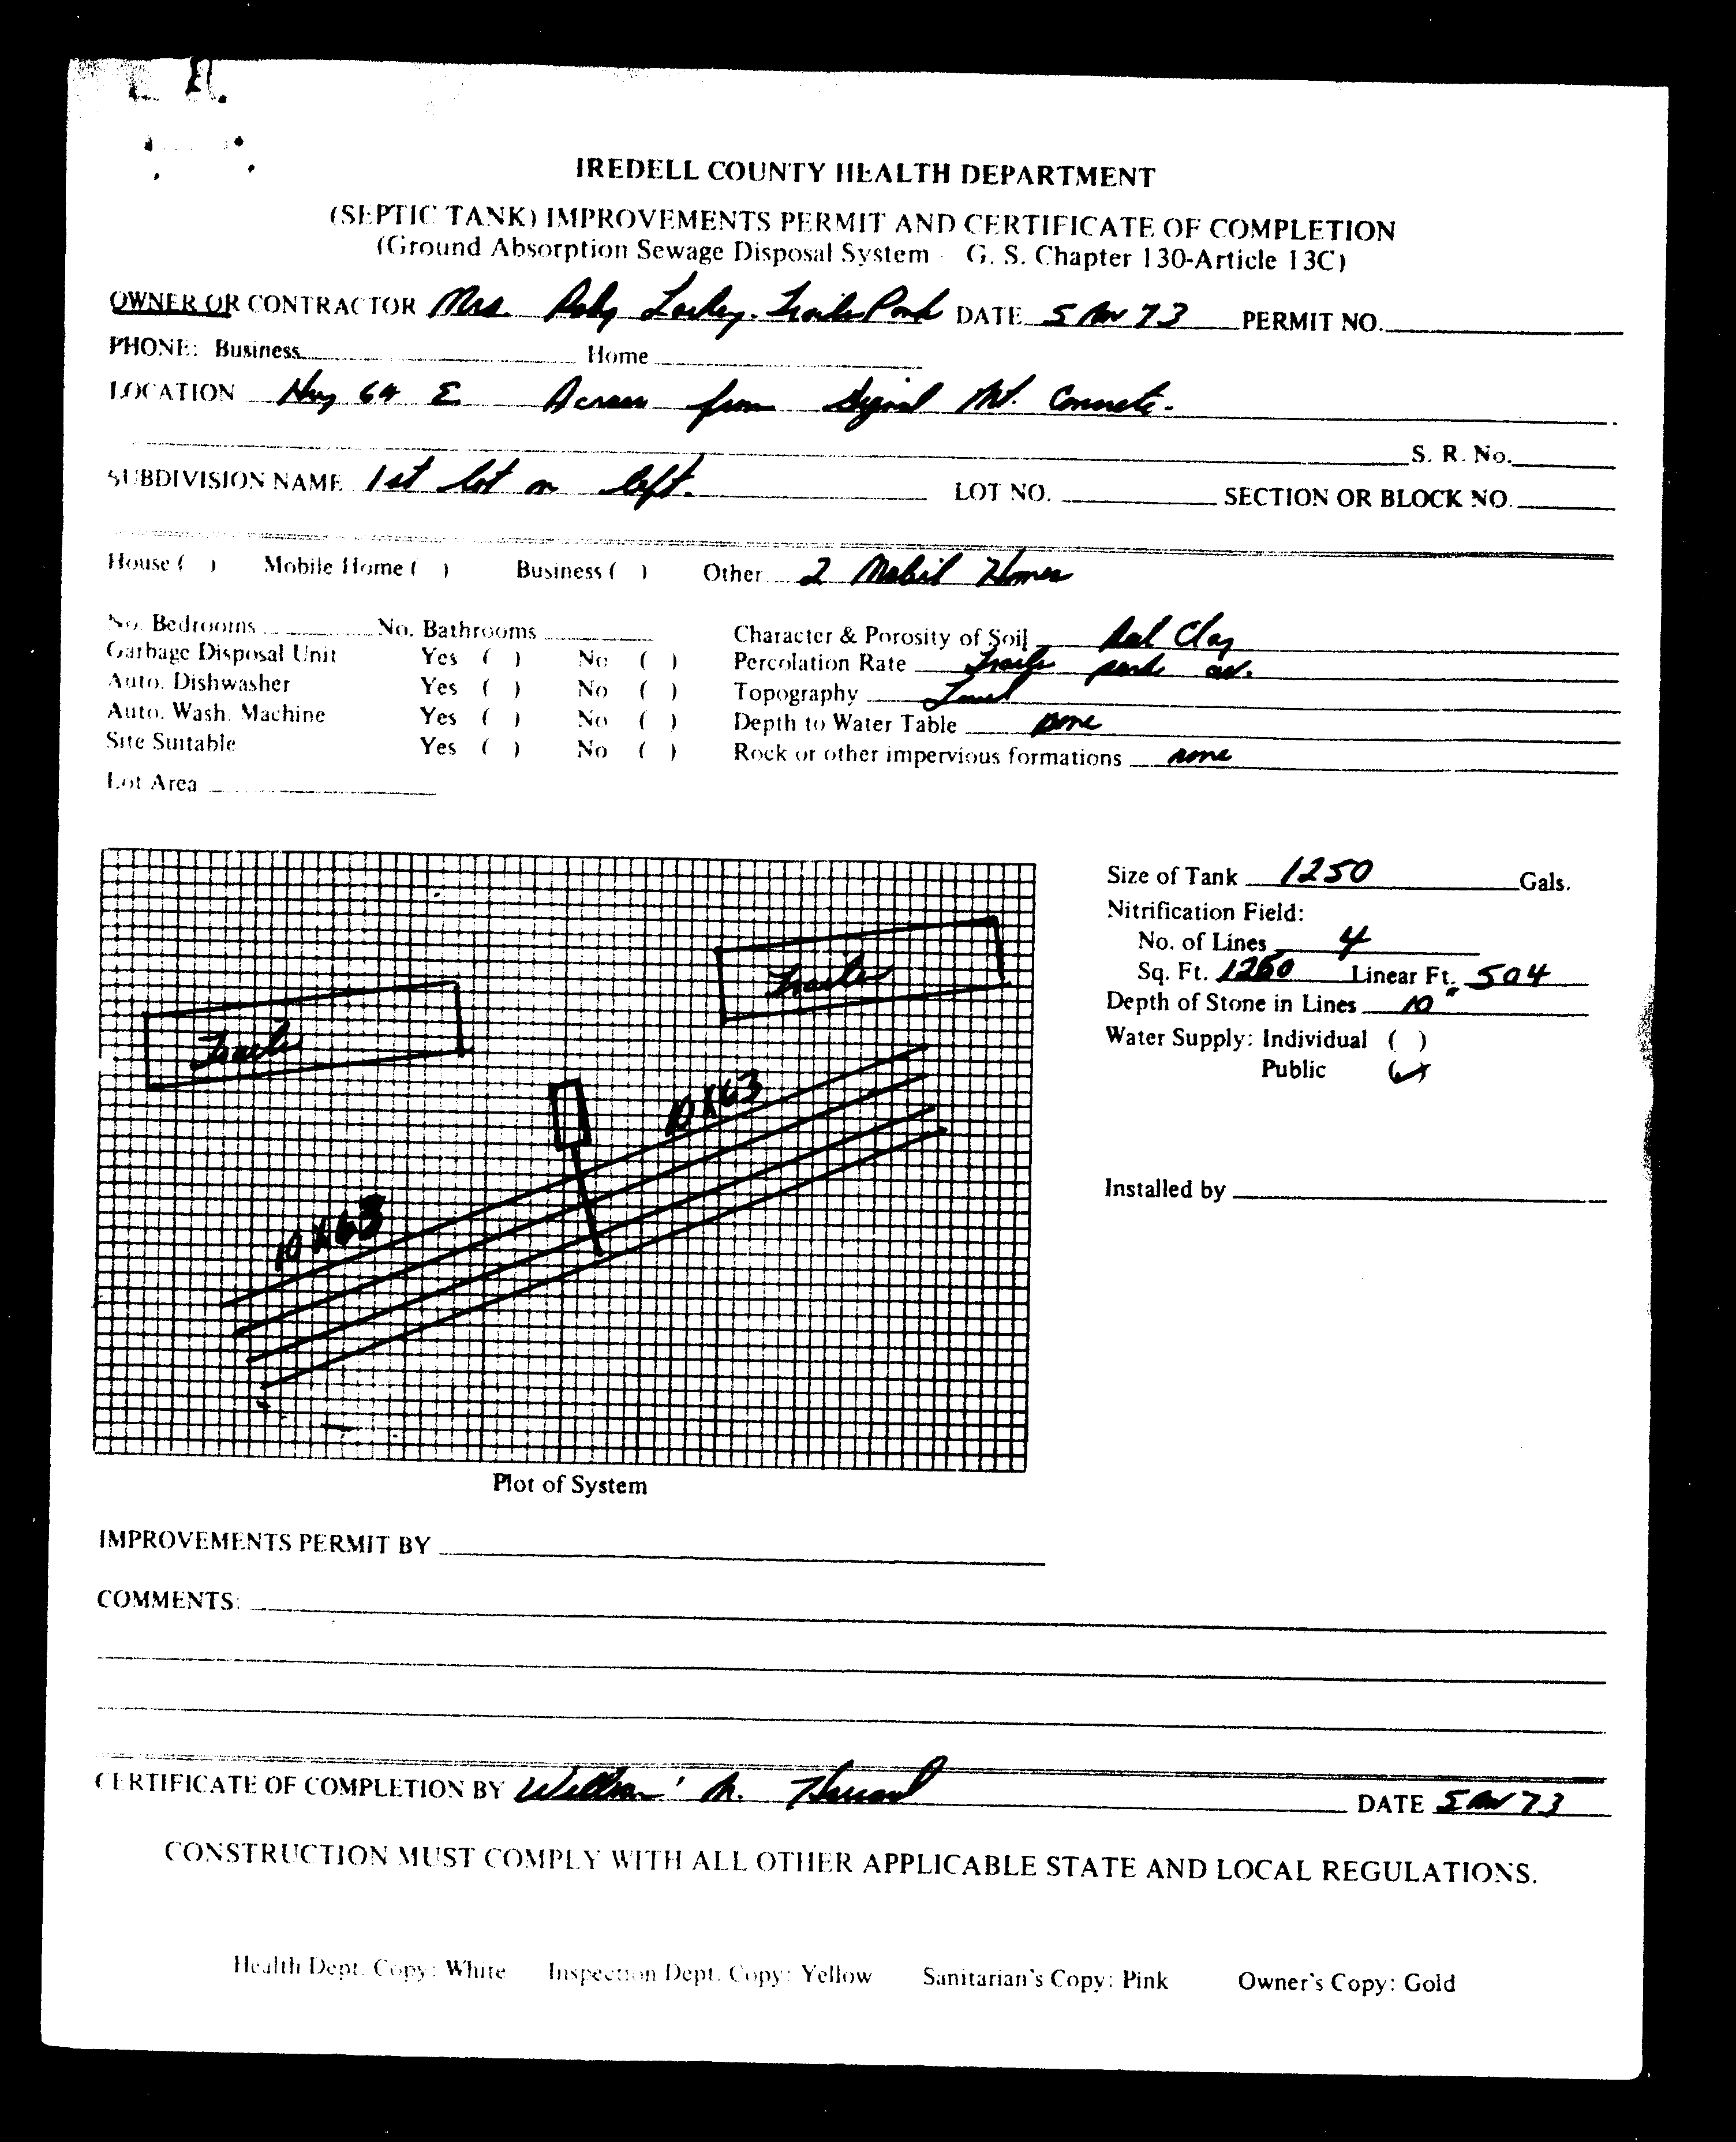 IREDELL COUNTY HEALTH DEPARTMENT
(SEPTIC TANK) IMPROVEMENTS PERMIT AND CERTIFICATE OF COMPLETION
(Ground Absorption Sewage Disposal System G. S. Chapter 130-Article 13C)
OWNER OR CONTRACTOR Mrs. DATE 5 73 PERMIT NO.
PHONE: Business Home
LOCATION Hwy 64 E Across from Signal Mt. Concrete.
S. R. No.
SUBDIVISION NAME 1st lot on left. LOT NO. SECTION OR BLOCK NO.
House ( ) Mobile Home ( ) Business ( ) Other 2 Mobil Homes
No. Bedrooms No. Bathrooms Character & Porosity of Soil Red Clay
Garbage Disposal Unit Yes ( ) No ( ) Percolation Rate Trailer park
Auto. Dishwasher Yes ( ) No ( ) Topography Level
Auto. Wash. Machine Yes ( ) No ( ) Depth to Water Table none
Site Suitable Yes ( ) No ( ) Rock or other impervious formations none
Lot Area
Size of Tank 1250 Gals.
Nitrification Field:
No. of Lines 4
Sq. Ft. 1260 Linear Ft. 504
Depth of Stone in Lines 10"
Water Supply: Individual ( )
Public ( )
Installed by
Trailer
Trailer
10 X 63
10 X 63
Plot of System
IMPROVEMENTS PERMIT BY
COMMENTS:
CERTIFICATE OF COMPLETION BY William M. DATE 5 73
CONSTRUCTION MUST COMPLY WITH ALL OTHER APPLICABLE STATE AND LOCAL REGULATIONS.
Health Dept. Copy: White Inspection Dept. Copy: Yellow Sanitarian's Copy: Pink Owner's Copy: Gold